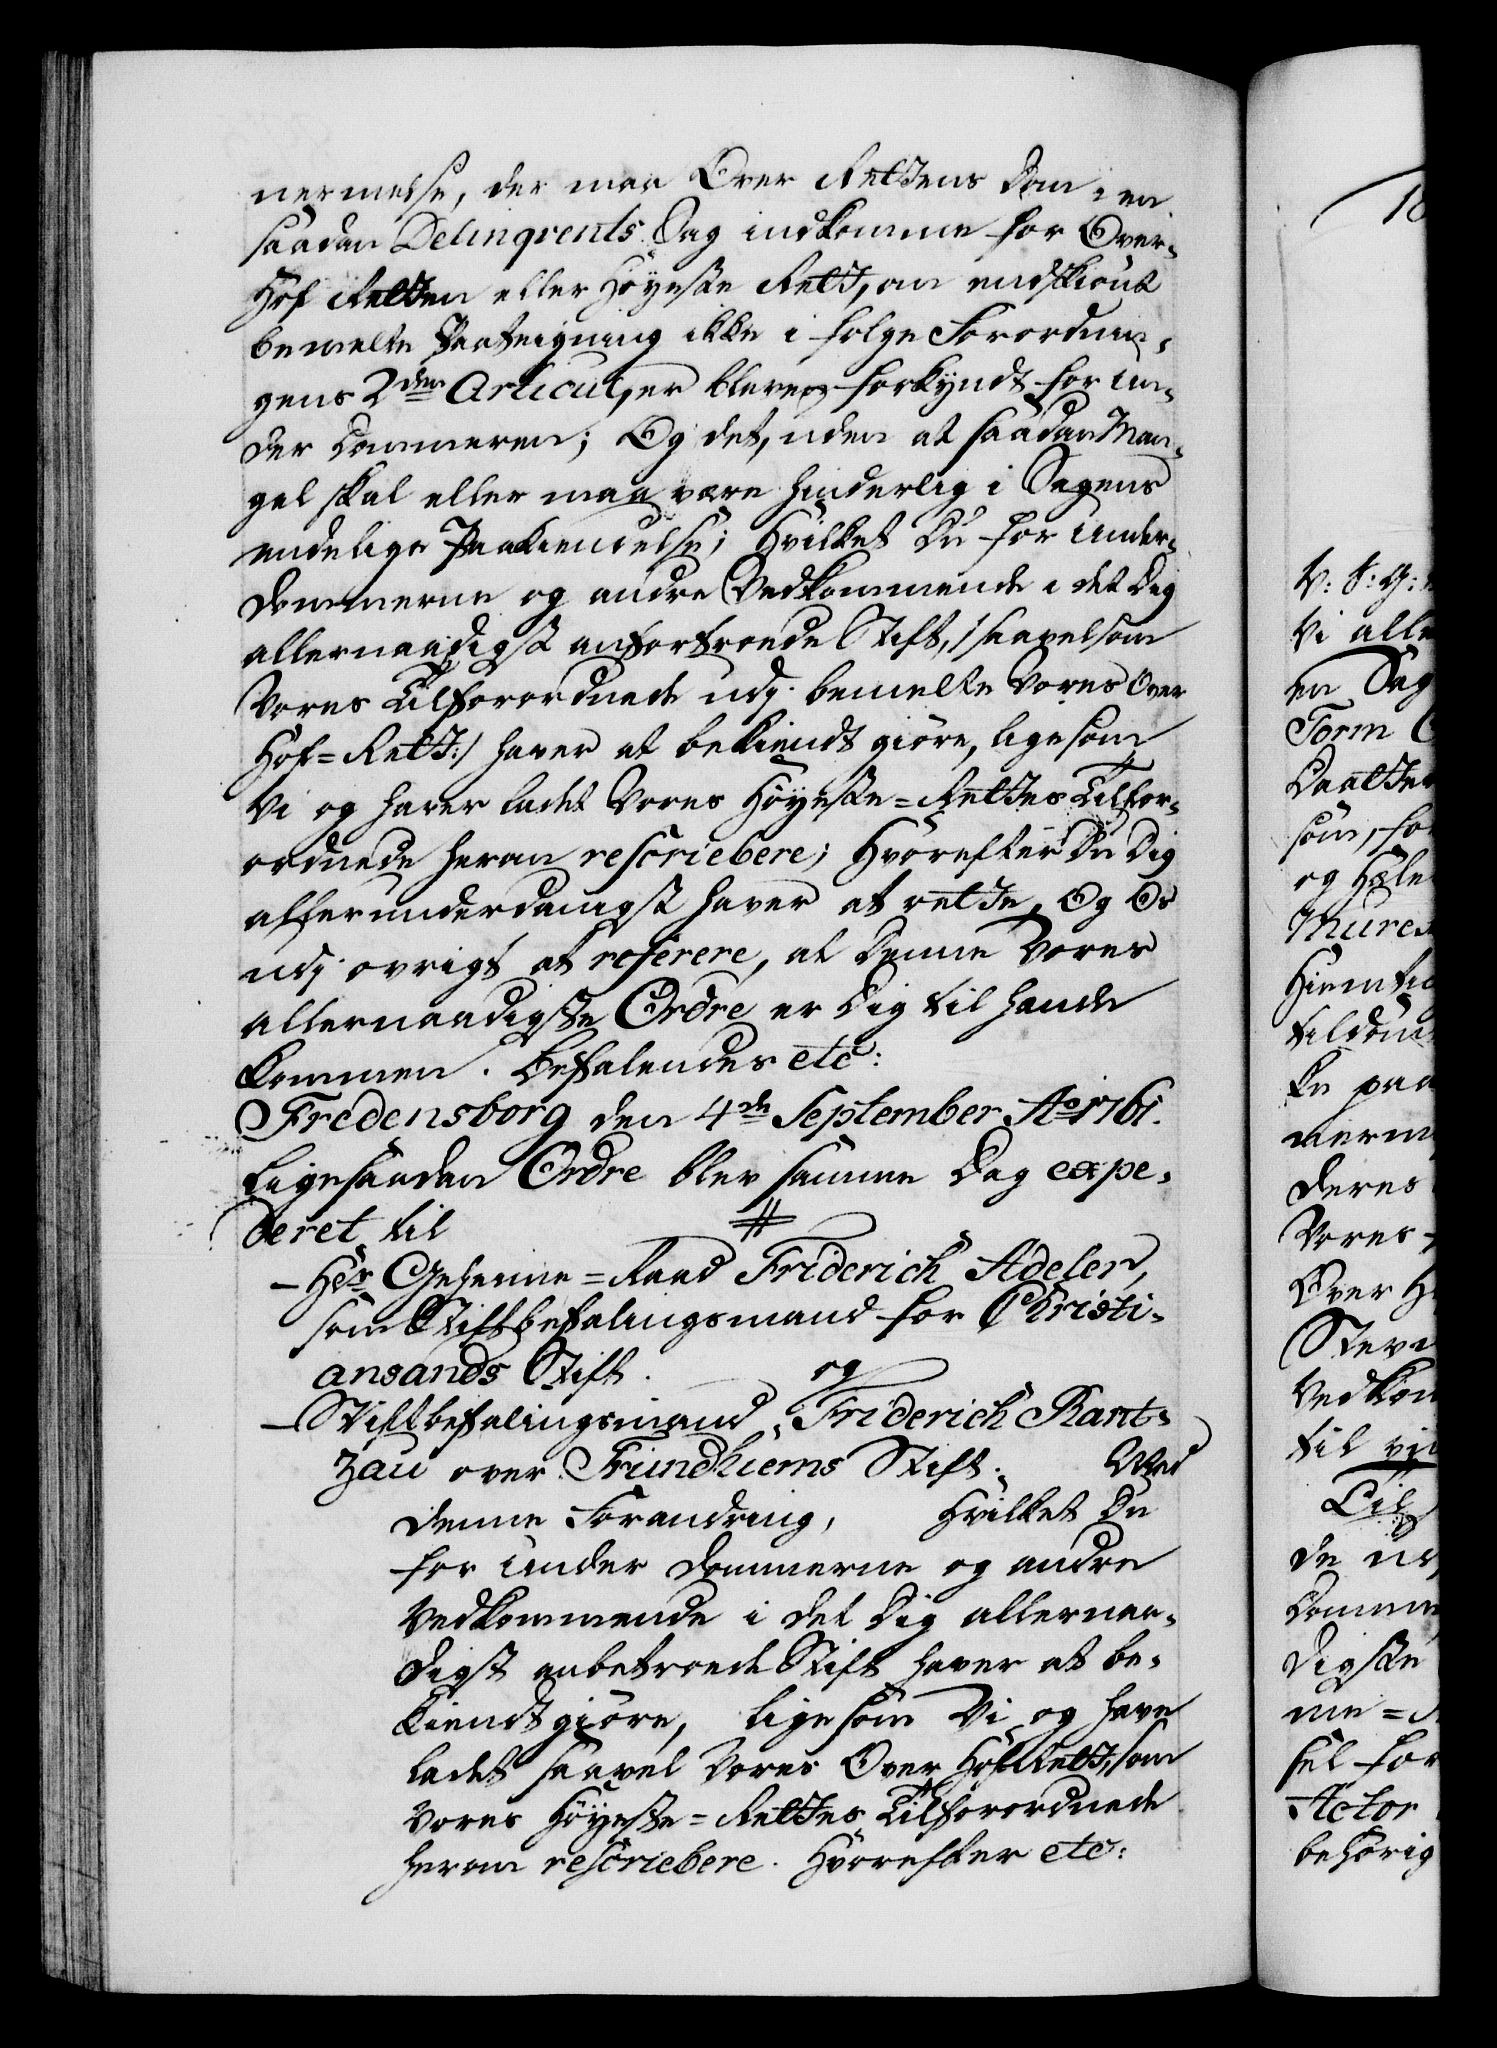 nermelse, der maa Over Rettens Dom i en
saadan Delinqvents Sag indkomme for Over-
Hof Retten eller Høyeste Rett, om endskiønt
bemelte Paateigning ikke i følge Forordnin-
gens 2den Articul, er bleven forkyndt for un-
der Dommeren; Og det, uden at saadan Man-
gel skal eller maa være hinderlig i Sagens
endelige Paakiendelse; Hvilket Du for under-
Dommerne og andre Vedkommende i det Dig
allernaadigst anfortroede Stift, /:saavelsom
Vores Tilforordnede udj bemelte Vores Over
Hof=Rett:/ haver at bekiendt giøre, ligesom
Vi og haver ladet Vores Høyeste=Rettes Tilfor-
ordnede herom rescriebere; Hvorefter Du Dig
allerunderdanigst haver at rette, Og Os
udj øvrigt at referere, at Denne Vores
allernaadigste Ordre er Dig til hænde
kommen. Befalendes etc:
Fredensborg den 4de September Ao 1761.
Ligesaadan Ordre blev samme Dag expe-
deret til
- Hr Geheime=Raad Friderich Adeler,
som Stiftbefalingsmand for Christi-
ansands Stift. og
- Stiftbefalingsmand Friderich Rant-
zau over Trundhiems Stift. Med
denne Forandring, Hvilket Du
for under Dommerne og andre
Vedkommende i det Dig allernaa-
digst anbetroede Stift haver at be-
kiendtgiøre, ligesom Vi og have
ladet saavel Vores Over HofRett, som
Vores Høyeste=Rettes Tilforordnede
herom rescriebere. Hvorefter etc:
V: S: G:
Vi alle
en Sag
Form
som, for
og
Mure
paa
deres
Vores
Over H
til
Til
de
digste
Actor
behørig